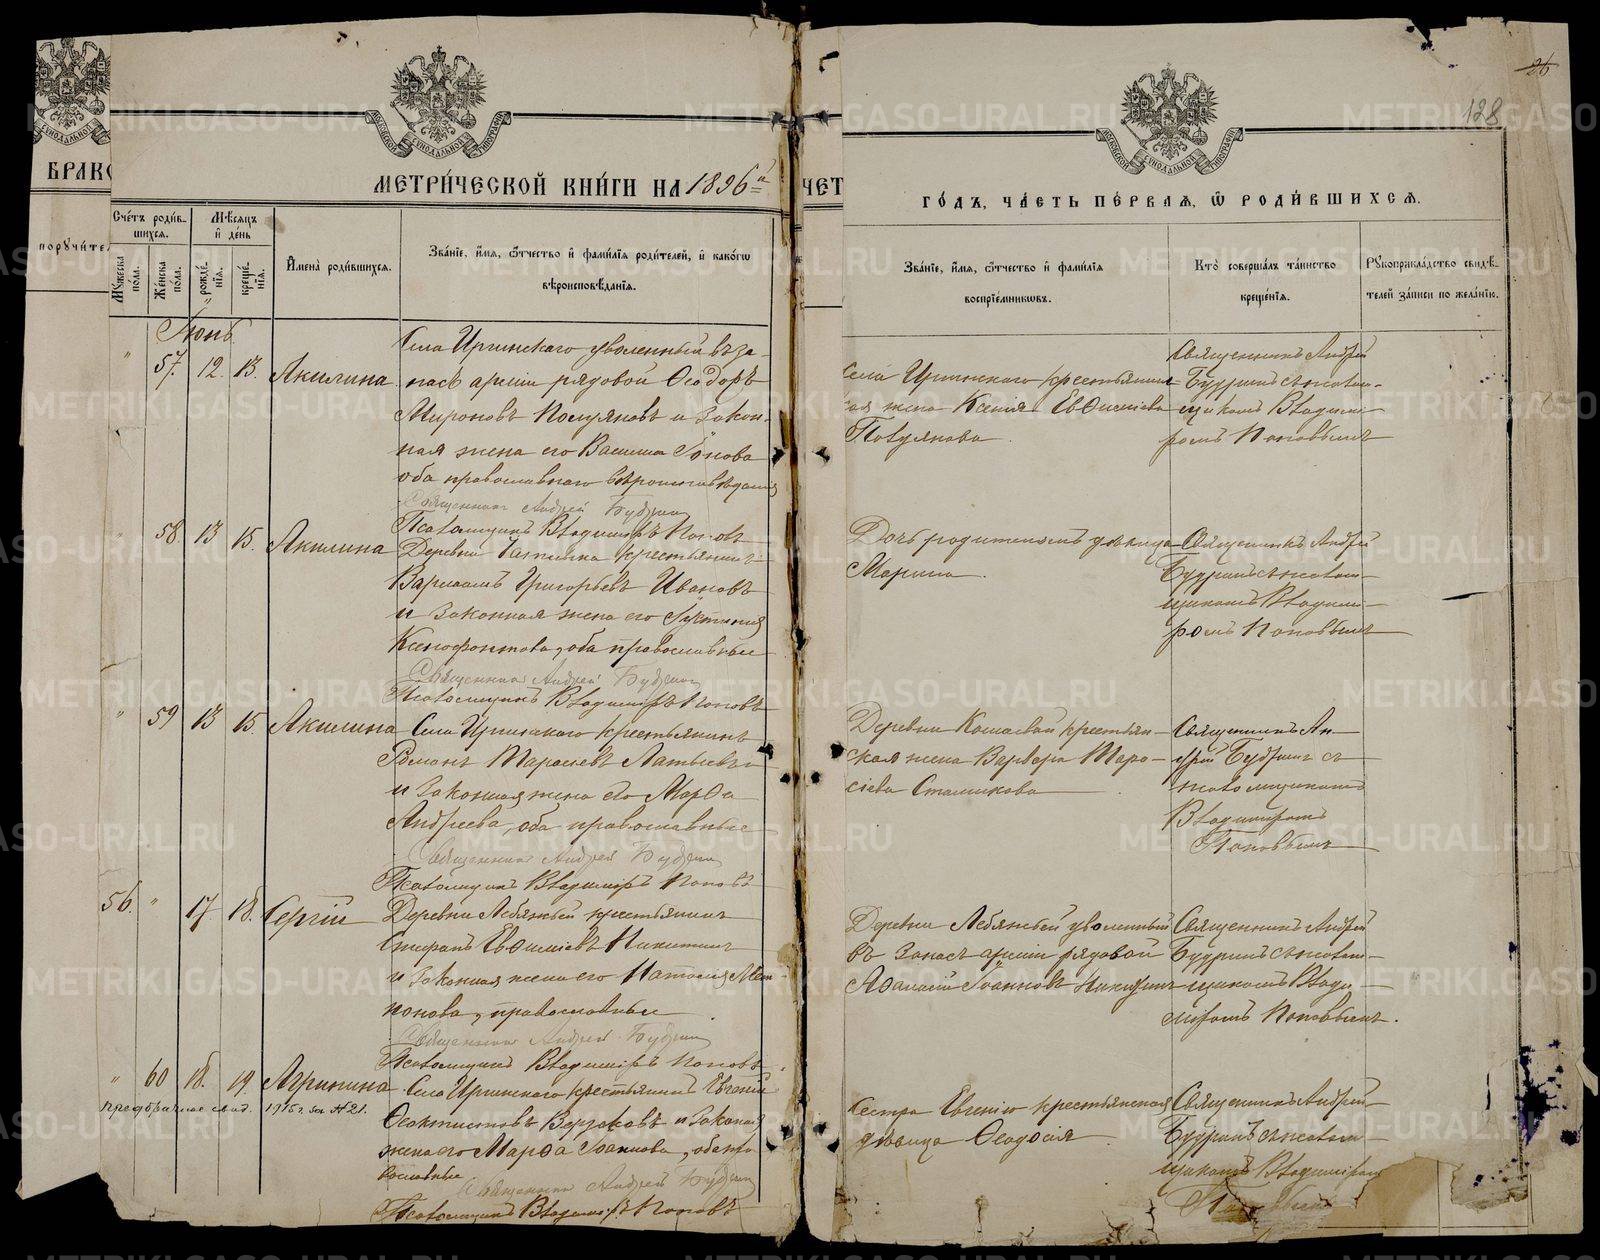 26
128
БРАК
МЕТРИ́ЧЕСКОЙ КНИ́ГИ НА 1896й
ЧЕТ
ГО́ДЪ, ЧА́СТЬ ПЕ́РВАѦ, Ѿ РОДИ́ВШИХСѦ.
поручите
Счётъ роди́в-
шихсѧ.
Мѣ́сѧцъ
и҆ де́нь
Мꙋ́жеска
по́ла.
Же́нска
по́ла.
рожде́-
нїѧ.
креще́-
нїѧ.
И҆мена̀ роди́вшихсѧ.
Зва́нїе, и҆́мѧ, ѻ҆́тчество и҆ фами́лїѧ роди́телей, и҆ како́гѡ
вѣроисповѣ́данїѧ.
Зва́нїе, и҆́мѧ, ѻ҆́тчество и҆ фами́лїѧ
воспрїе́мникѡвъ.
Кто̀ соверша́лъ та́инство
креще́нїѧ.
Рꙋкоприкла́дство свидѣ́-
телей за́писи по жела́нїю.
Іюнь
" 57. 12. 13. Акилина
Села Иргинскаго уволенный въ за-
пасъ арміи рядовой Ѳеодоръ
Мироновъ Полуяновъ и закон-
ная жена его Васса Іонова
оба православнаго вѣроисповѣданія
Священник Андрей Будрин
Псаломщикъ Владиміръ Поповъ
Села Иргинскаго крестьянин-
ская жена Ксенія Евѳиміева
Полуянова.
Священникъ Андрей
Будринъ съ псалом-
щикомъ Владими-
ромъ Поповымъ
" 58. 13 15. Акилина
Деревни крестьянинъ
Варлаамъ Григорьевъ Ивановъ
и законная жена его Іустинія
Ксенофонтова, оба православные
Священник Андрей Будрин
Псаломщикъ Владиміръ Поповъ
Дочь родителямъ дѣвица
Марина.
Священникъ Андрей
Будринъ съ псалом-
щикомъ Владими-
ромъ Поповымъ
" 59 13 15. Акилина
Села Иргинскаго крестьянинъ
Романъ Тарасіевъ
и законная жена его Марѳа
Андреева, оба православные
Священник Андрей Будрин
Псаломщикъ Владиміръ Поповъ
Деревни крестьян-
ская жена Варвара Тара-
сіева Стамикова
Священникъ Ан-
дрей Будринъ съ
псаломщикомъ
Владиміромъ
Поповымъ
56. " 17 18. Сергій
Деревни Лебяжьей крестьянинъ
Спирапъ Евѳиміевъ Никитинъ
и законная жена его Наталія
православные.
Священник Андрей Будрин
Псаломщикъ Владиміръ Поповъ
Деревни Лебяжьей уволенный
въ запасъ арміи рядовой
Аѳанасій Іоанновъ Никитинъ
Священникъ Андрей
Будринъ съ псалом-
щикомъ Влади-
міромъ Поповымъ.
" 60 18. 19. Агрипина
предбрачное свид. 1915 г. за № 21.
Села Иргинскаго крестьянинъ Евгеній
Ѳеоктистовъ и законная
жена его Марѳа Іоаннова, оба пра-
вославные
Священник Андрей Будрин
Псаломщикъ Владиміръ Поповъ
Сестра Евгенію крестьянская
дѣвица Ѳеодосія.
Священникъ Андрей
Будринъ съ псалом-
щикомъ Владиміром
Поповым